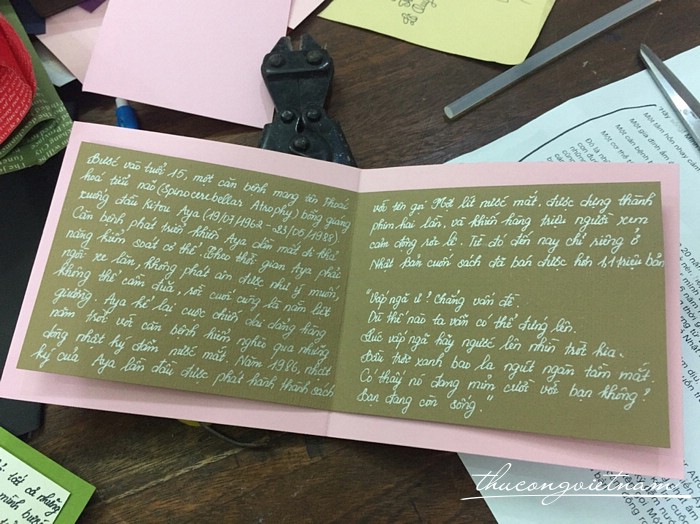 Bước vào tuổi 15, một căn bệnh mang tên Thoái
hoá tiểu não (Spinocerebellar Atrophy) bỗng giáng
xuống đầu Kitou Aya (19/07/1962 - 23/05/1988).
Căn bệnh phát triển khiến Aya dần mất đi khả
năng kiểm soát cơ thể. Theo thời gian Aya phải
ngồi xe lăn, không phát âm được như ý muốn,
không thể cầm đũa, rồi cuối cùng là nằm liệt
giường. Aya kể lại cuộc chiến dai dẳng hàng
năm trời với căn bệnh hiểm nghèo qua những
dòng nhật ký đẫm nước mắt. Năm 1986, nhật
ký của Aya lần đầu được phát hành thành sách
với tên gọi Một lít nước mắt, được dựng thành
phim hai lần, và khiến hàng triệu người xem
cảm động rơi lệ. Từ đó đến nay chỉ riêng ở
Nhật Bản cuốn sách đã bán được hơn 1,1 triệu bản
"Vấp ngã ư? Chẳng vấn đề.
Dù thế nào ta vẫn có thể đứng lên.
Lúc vấp ngã hãy ngước lên nhìn trời kia.
Bầu trời xanh bao la ngút ngàn tầm mắt.
Có thấy nó đang mỉm cười với bạn không?
Bạn đang còn sống."
thucongvietnam